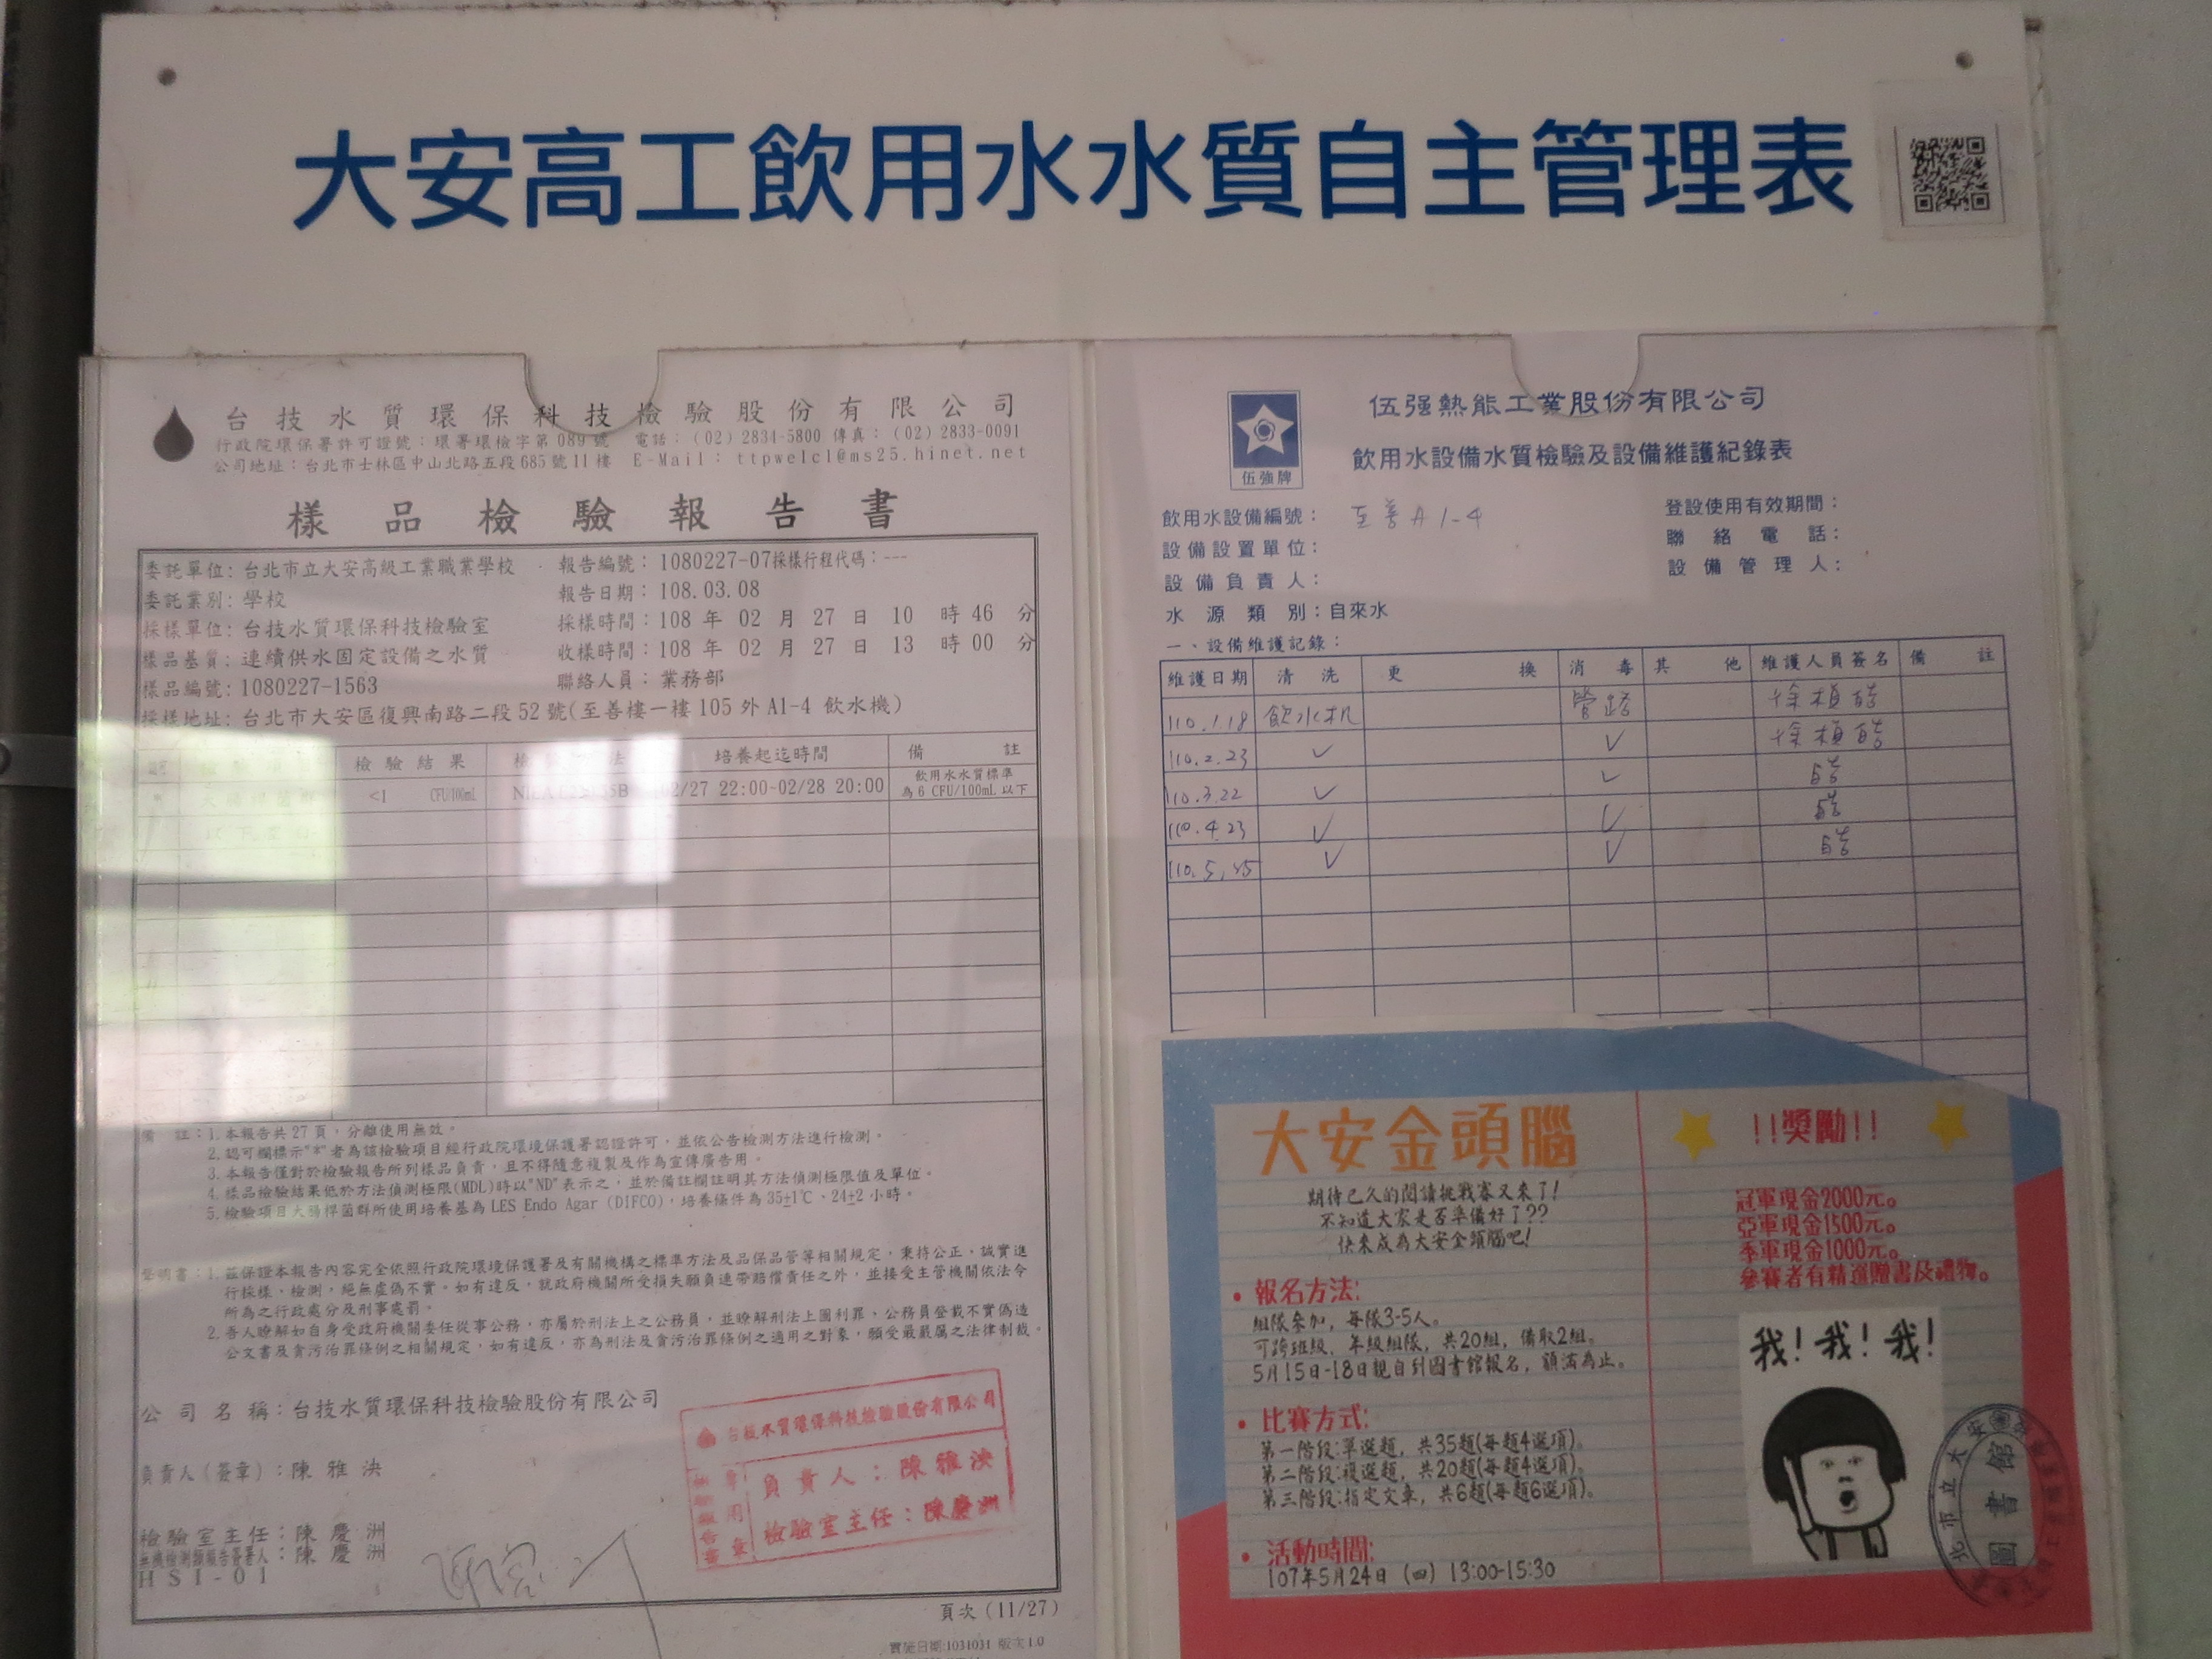 大安高工飲用水水質自主管理表
台技水質環保科技檢驗股份有限公司
行政院環保署許可證號：環署環檢字第089號 電話：(02)2834-5800 傳真：(02)2833-0091
公司地址：台北市士林區中山北路五段685號11樓 E-Mail： ttpwelcl@ms25.hinet.net
樣品檢驗報告書
委託單位：台北市立大安高級工業職業學校 報告編號：1080227-07採樣行程代碼：---
委託業別：學校 報告日期：108.03.08
採樣單位：台技水質環保科技檢驗室 採樣時間：108 年 02 月 27 日 10 時 46 分
樣品基質：連續供水固定設備之水質 收樣時間：108 年 02 月 27 日 13 時 00 分
樣品編號：1080227-1563 聯絡人員：業務部
採樣地址：台北市大安區復興南路二段52號(至善樓一樓105外A1-4 飲水機)
檢驗結果 培養起迄時間 備註
<1 CFU/100mL 02/27 22:00-02/28 20:00 飲用水水質標準
為6 CFU/100mL以下
備註：1.本報告共27頁，分離使用無效。
2.認可欄標示"*"者為該檢驗項目經行政院環境保護署認證許可，並依公告檢測方法進行檢測。
3.本報告僅對於檢驗報告所列樣品負責，且不得隨意複製及作為宣傳廣告用。
4.樣品檢驗結果低於方法偵測極限(MDL)時以"ND"表示之，並於備註欄註明其方法偵測極限值及單位。
5.檢驗項目大腸桿菌群所使用培養基為LES Endo Agar (DIFCO)，培養條件為35±1℃、24±2小時。
聲明書：1.茲保證本報告內容完全依照行政院環境保護署及有關機構之標準方法及品保品管等相關規定，秉持公正、誠實進
行採樣、檢測，絕無虛偽不實。如有違反，就政府機關所受損失願負連帶賠償責任之外，並接受主管機關依法令
所為之行政處分及刑事處罰。
2.吾人瞭解如自身受政府機關委任從事公務，亦屬於刑法上之公務員，並瞭解刑法上圖利罪、公務員登載不實偽造
公文書及貪污治罪條例之相關規定，如有違反，亦為刑法及貪污治罪條例之適用之對象，願受最嚴厲之法律制裁。
公司名稱：台技水質環保科技檢驗股份有限公司
負責人(簽章)：陳雅泱
檢驗室主任：陳慶洲
無機檢測類報告簽署人：陳慶洲
HSI-01
台技水質環保科技檢驗股份有限公司
負責人：陳雅泱
檢驗室主任：陳慶洲
頁次(11/27)
實施日期:1031031 版次1.0
伍強牌
伍强熱能工業股份有限公司
飲用水設備水質檢驗及設備維護紀錄表
飲用水設備編號：至善A1-4 登設使用有效期間：
設備設置單位： 聯絡電話：
設備負責人： 設備管理人：
水源類別：自來水
一、設備維護記錄：
維護日期 清洗 更換 消毒 其他 維護人員簽名 備註
110.1.18 飲水机 管路
110.2.23 ✓ ✓
110.3.22 ✓ ✓
110.4.23 ✓ ✓
110.5. ✓ ✓
大安金頭腦
期待已久的閱讀挑戰賽又來了!
不知道大家是否準備好了??
快來成為大安金頭腦吧!
• 報名方法:
組隊參加，每隊3-5人。
可跨班級、年級組隊，共20組，備取2組。
5月15日-18日親自到圖書館報名，額滿為止。
• 比賽方式:
第一階段:單選題，共35題(每題4選項)。
第二階段:複選題，共20題(每題4選項)。
第三階段:指定文章，共6題(每題6選項)。
• 活動時間:
107年5月24日 (四) 13:00-15:30
!!獎勵!!
冠軍現金2000元。
亞軍現金1500元。
季軍現金1000元。
參賽者有精選贈書及禮物。
我!我!我!
圖書館